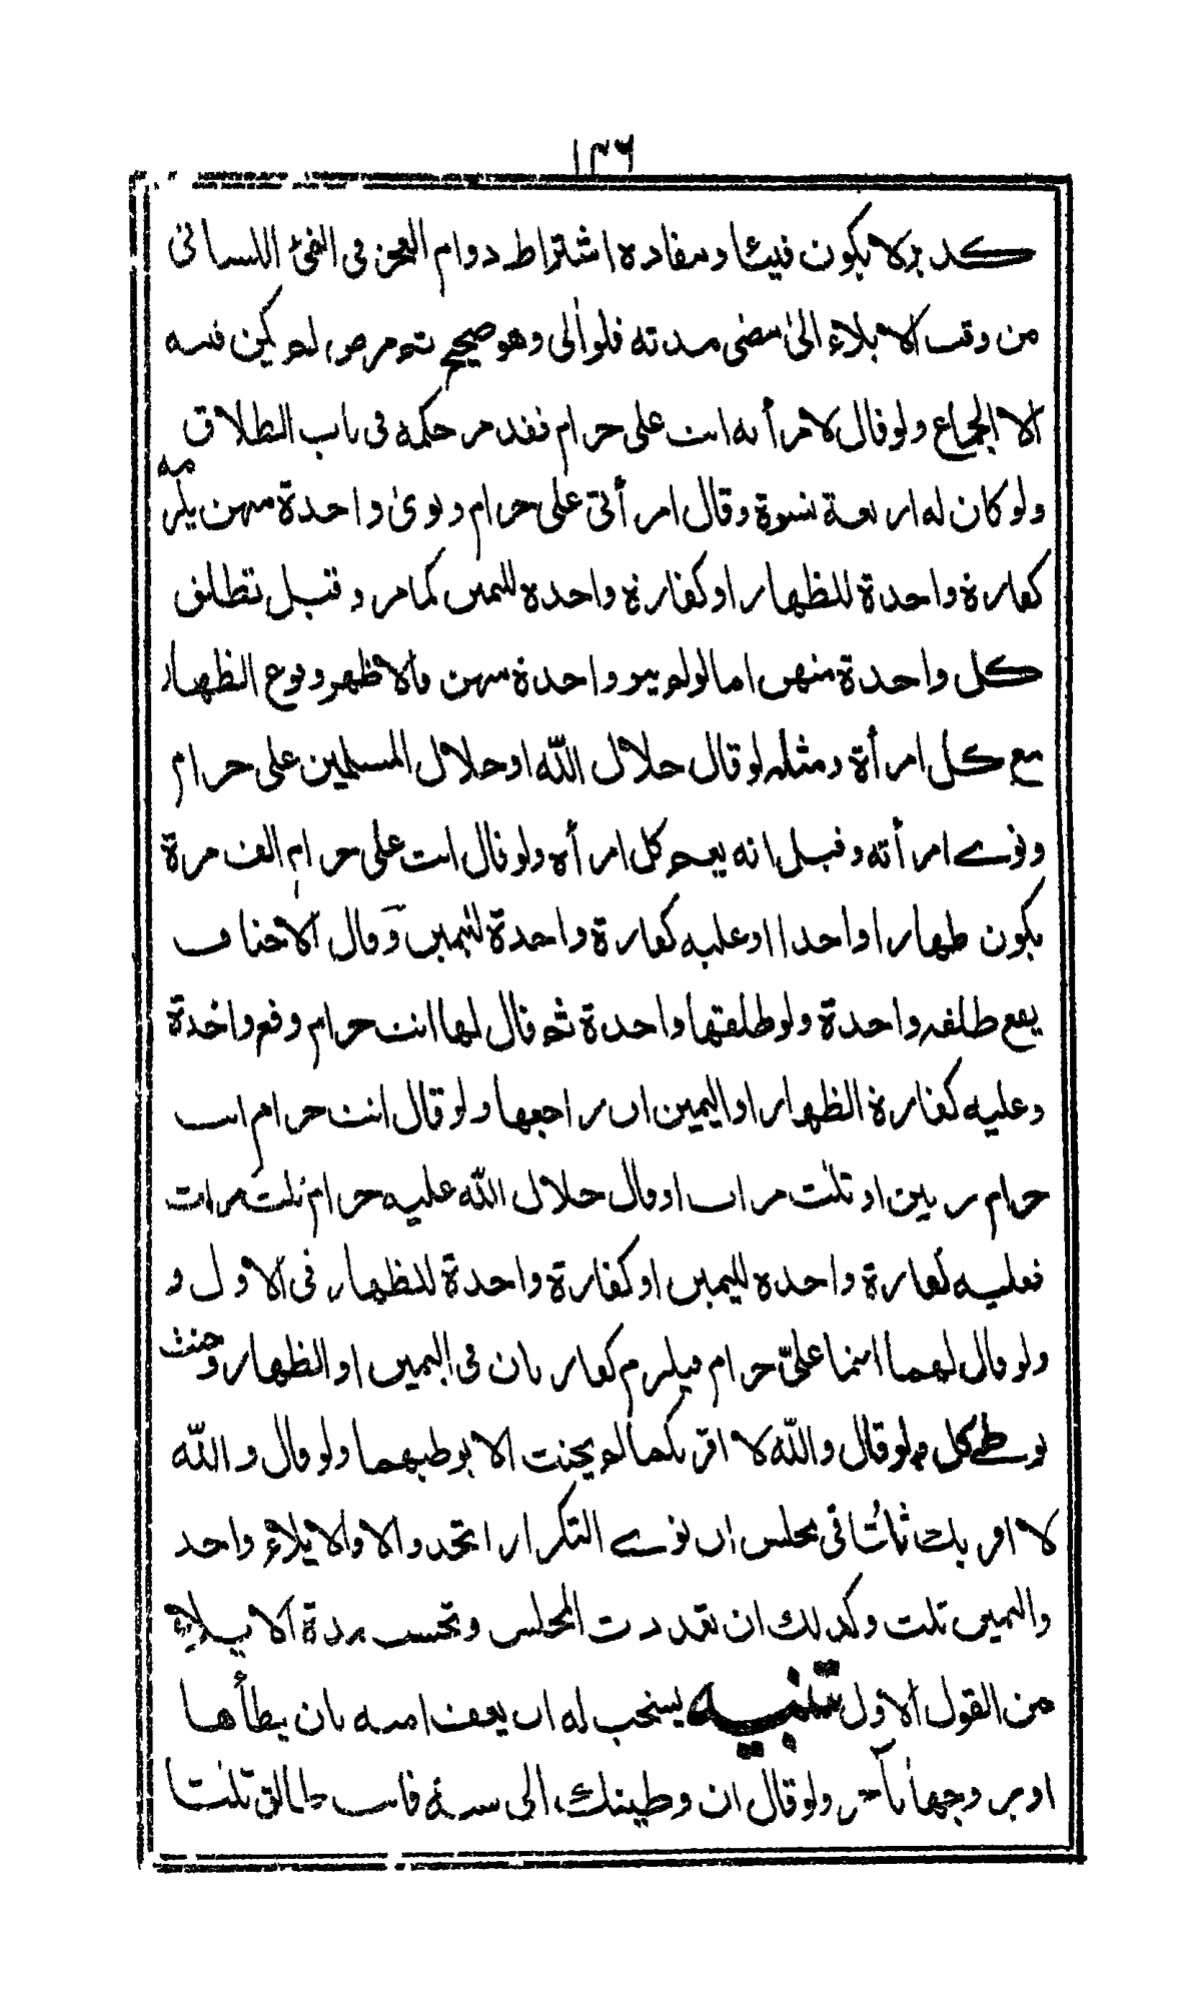 ١٣٦
كدير لا يكون فيئا ومفاده اشتراط دوام العجز فى الفئ اللسانى
من وقت الايلاء الىٰ مضى مدته فلو اٰلى وهو صحيح ثم مرض لم يكن فيئه
الا الجماع ولو قال لامرأته انت على حرام فقد مر حكمه فى باب الطلاق
ولو كان له اربعة نسوة وقال امرأتى على حرام ونوىٰ واحدة منهن يلزمه
كفارة واحدة للظهار او كفارة واحدة لليمين كما مر وقيل تطلق
كل واحدة منهن اما لو لم ينو واحدة منهن فالاظهر وقوع الظهار
مع كل امرأة ومثله لو قال حلال الله او حلال المسلمين على حرام
ونوى امرأته وقيل انه يعم كل امرأة ولو قال انت على حرام الف مرة
يكون ظهارا واحدا او عليه كفارة واحدة لليمين وقال الاحناف
يقع طلقه واحدة ولو طلقتها واحدة ثم قال لها انت حرام وقع واحدة
وعليه كفارة الظهار او اليمين ان راجعها ولو قال انت حرام انت
حرام مرتين او ثلث مرات او قال حلال الله عليه حرام ثلث مرات
فعليه كفارة واحدة لليمين او كفارة واحدة للظهار فى الاول و
ولو قال لهما انتما علىّ حرام فيلزم كفارتان فى اليمين او الظهار وحنث
بوطى كل ولو قال والله لا اقربكما لم يحنث الا بوطيهما ولو قال والله
لا اقربك ثلثا فى مجلس ان نوى التكرار اتحد والا والايلاء واحد
واليمين ثلث وكذلك ان تعددت المجلس وتحسب مدة الايلاء
من القول الاول تنبيه يستحب له ان يعف امته بان يطأها
او يزوجها باٰخر ولو قال ان وطيتك الى سنة فانت طالق ثلثا